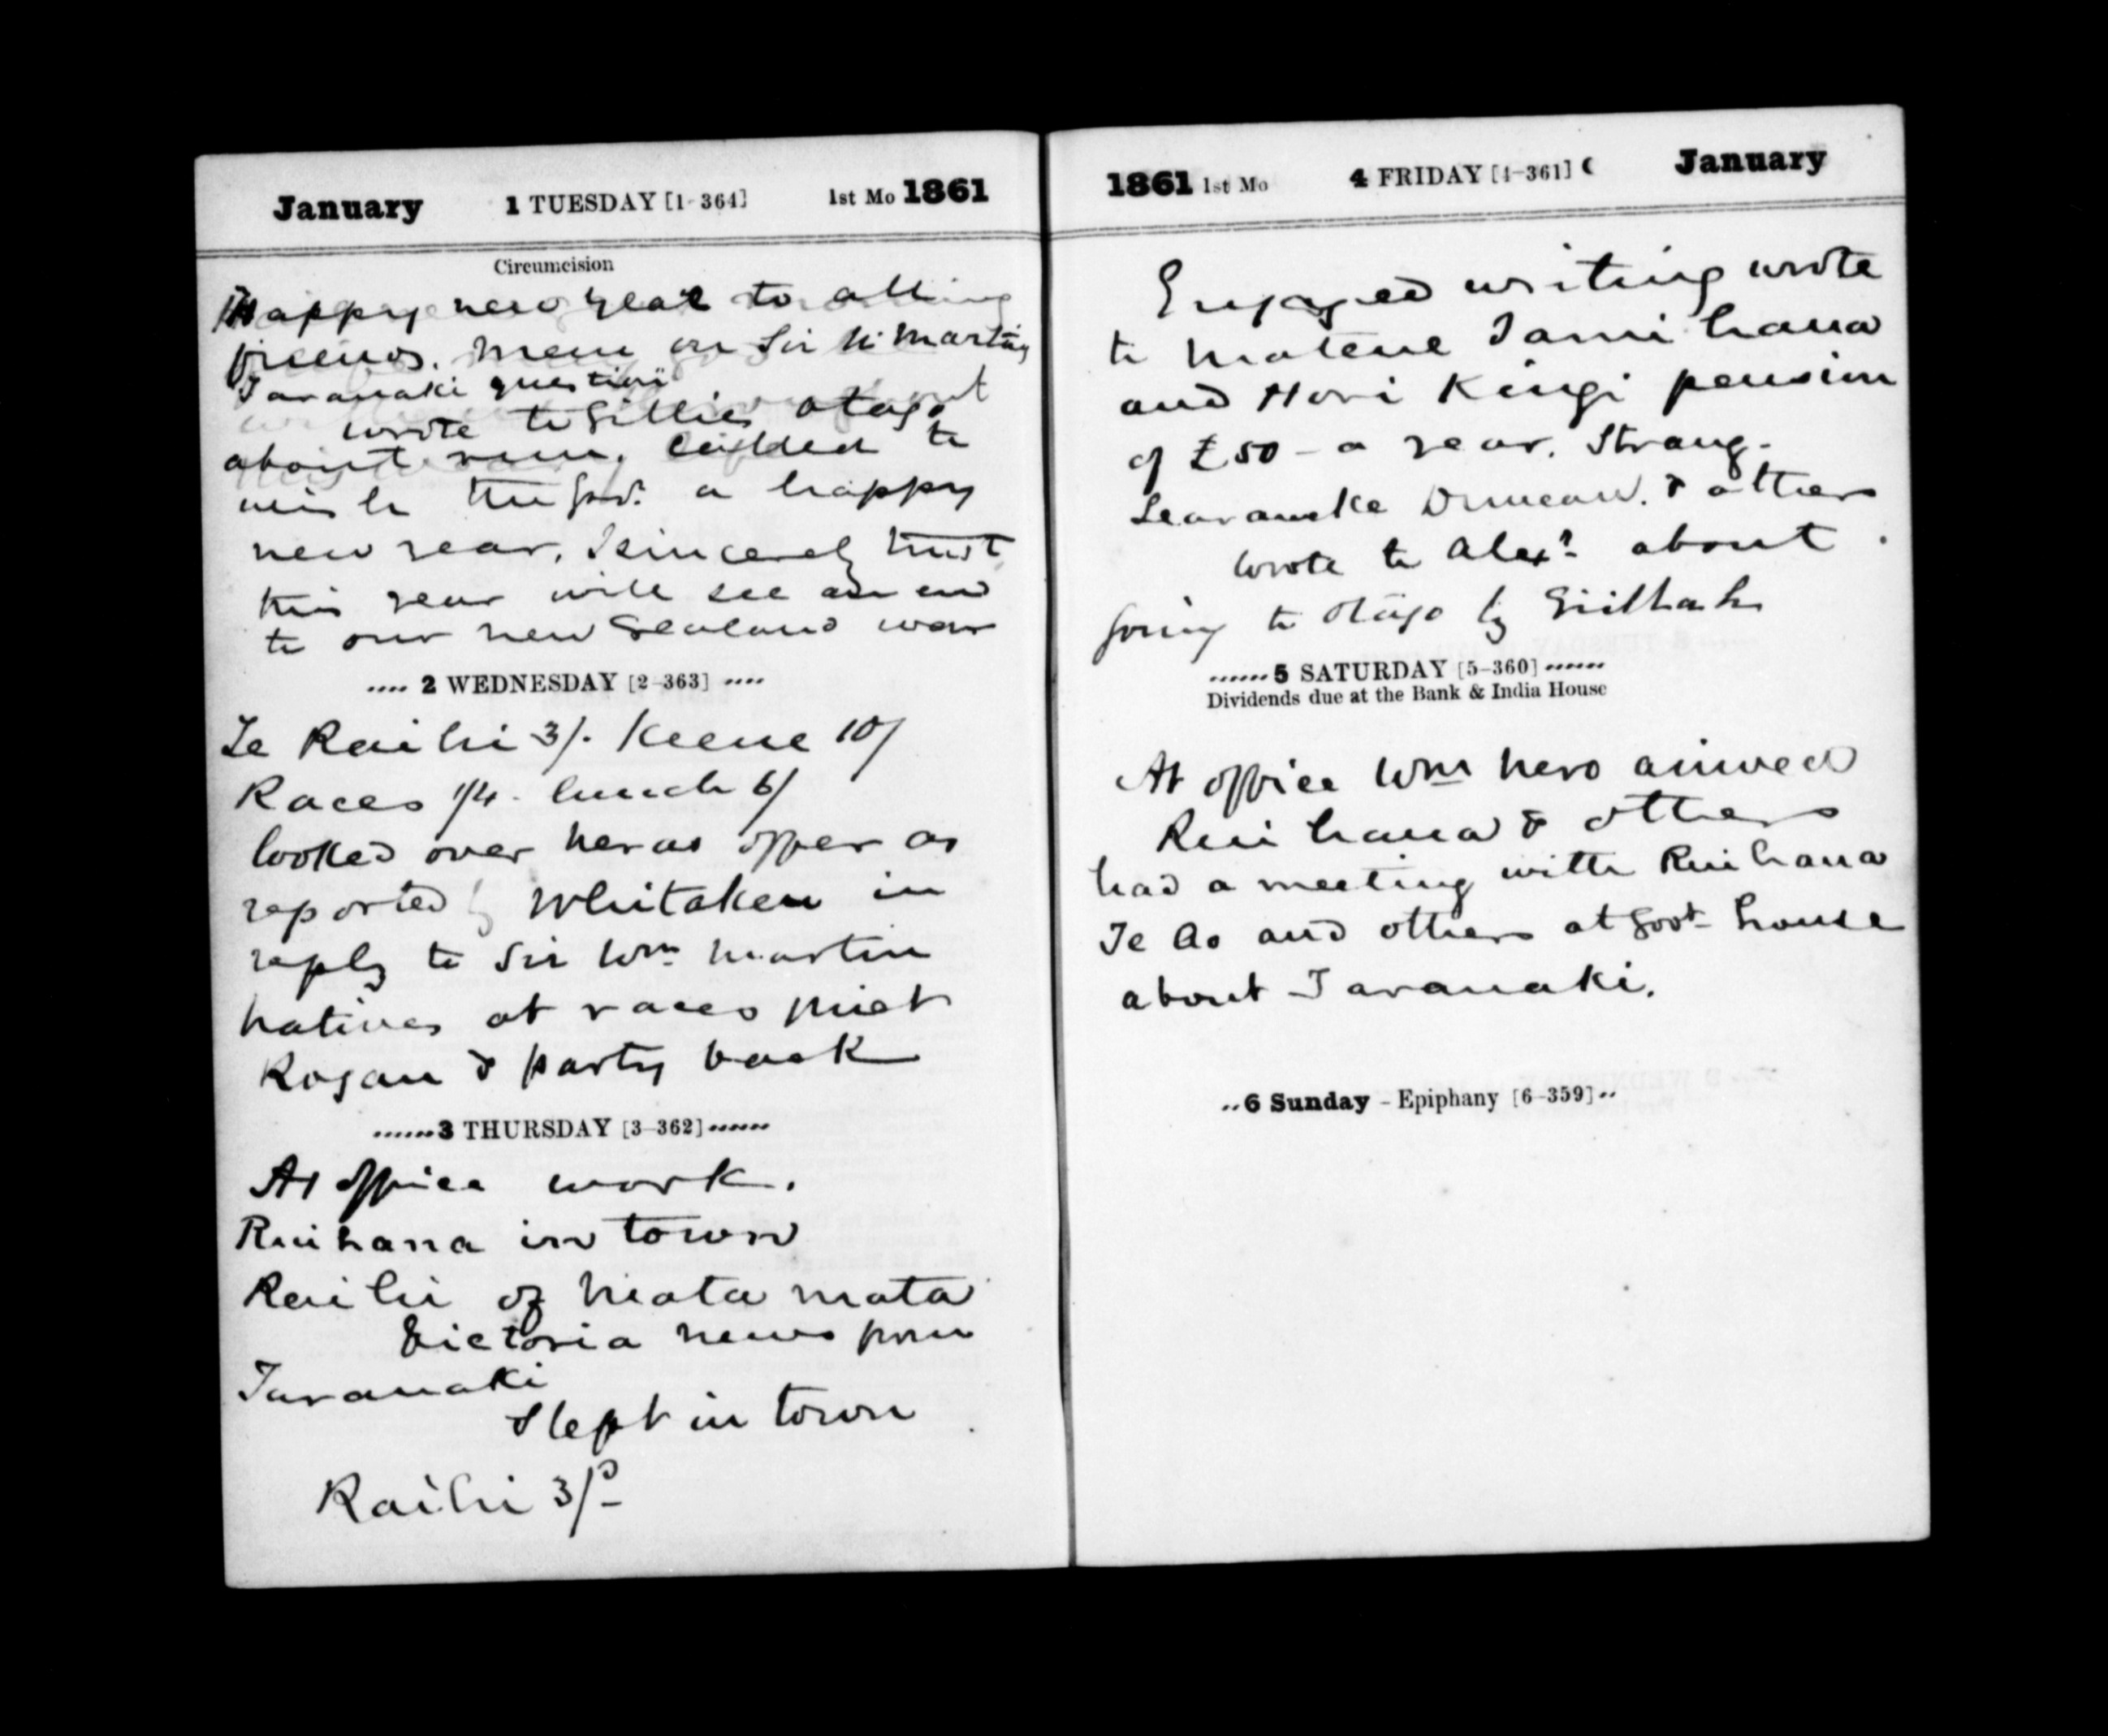 January 1 TUESDAY [1-364] 1st Mo 1861
Circumcision
Happy new year to all
friends. Mem on Sir W Martins
Taranaki question
wrote to Gillies Otago
about run. Called to
wish the Govr. a happy
new year, I sincerely trust
this year will see an end
to our new Zealand war
.... 2 WEDNESDAY [2-363] ....
Te Raihi 3/. Keene 10/
Races 1/4. lunch 6/
looked over heras offer as
reported by Whitaker in
reply to Sir Wm Martin
natives at races met
Rogan & party back
......3 THURSDAY [3-362]......
At office work.
Ruihana in town
Raihi of Mata mata
Victoria news from
Taranaki
Slept in town
Raihi 3/-
1861 1st Mo 4 FRIDAY [4-361] ☾ January
Engaged writing wrote
to Matene Tamihana
and Hori Kingi pension
of £50 - a year. Strang-
Searancke Duncan. & others
wrote to Alexr about
going to Otago by
......5 SATURDAY [5-360]......
Dividends due at the Bank & India House
At office Wm hero arrived
Ruihana & others
had a meeting with Ruihana
Te Ao and others at Govt house
about Taranaki.
..6 Sunday - Epiphany [6-359]..